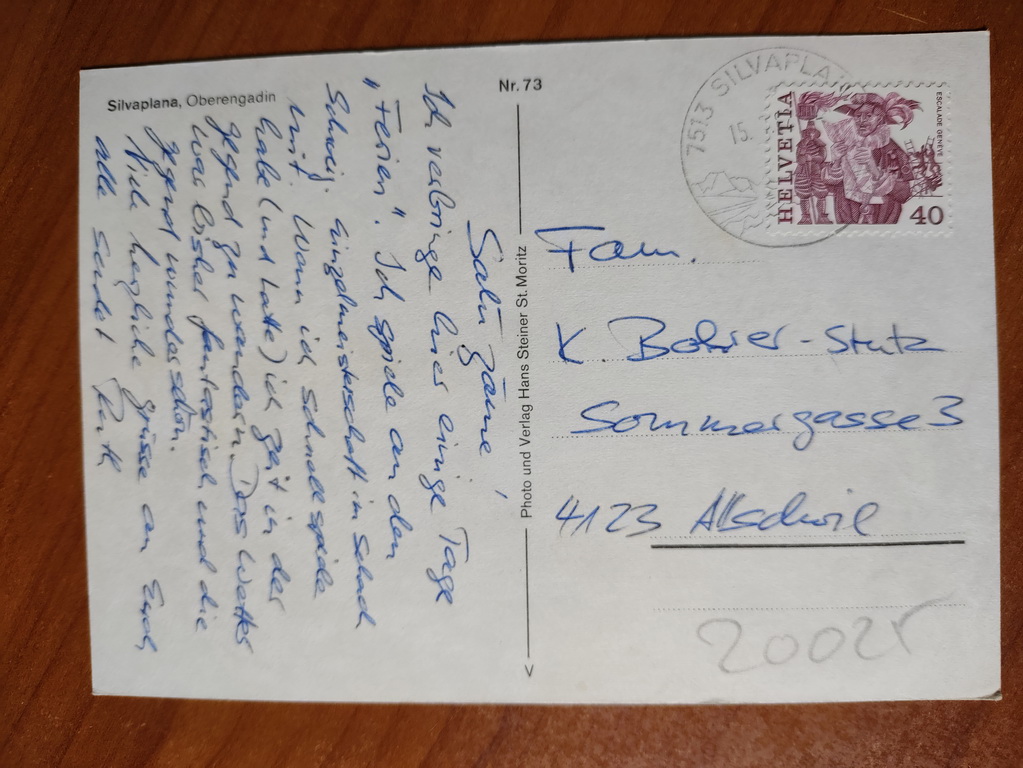 Silvaplana, Oberengadin
Nr. 73
Salü zäme!
Ich verbringe hier einige Tage
"Ferien". Ich spiele an den
Schweiz. Einzelmeisterschaft im Schach
mit. Wenn ich schnell spiele
habe (und hatte) ich Zeit in der
Gegend zu wandern. Das Wetter
war bisher fantastisch und die
Gegend wunderschön.
Viele herzliche Grüsse an Euch
alle sendet Ruth
Photo und Verlag Hans Steiner St. Moritz
7513 SILVAPLA
15.
HELVETIA
ESCALADE GENÈVE
40
Fam.
K. Bohrer-Stutz
Sommergasse 3
4123 Allschwil
20025